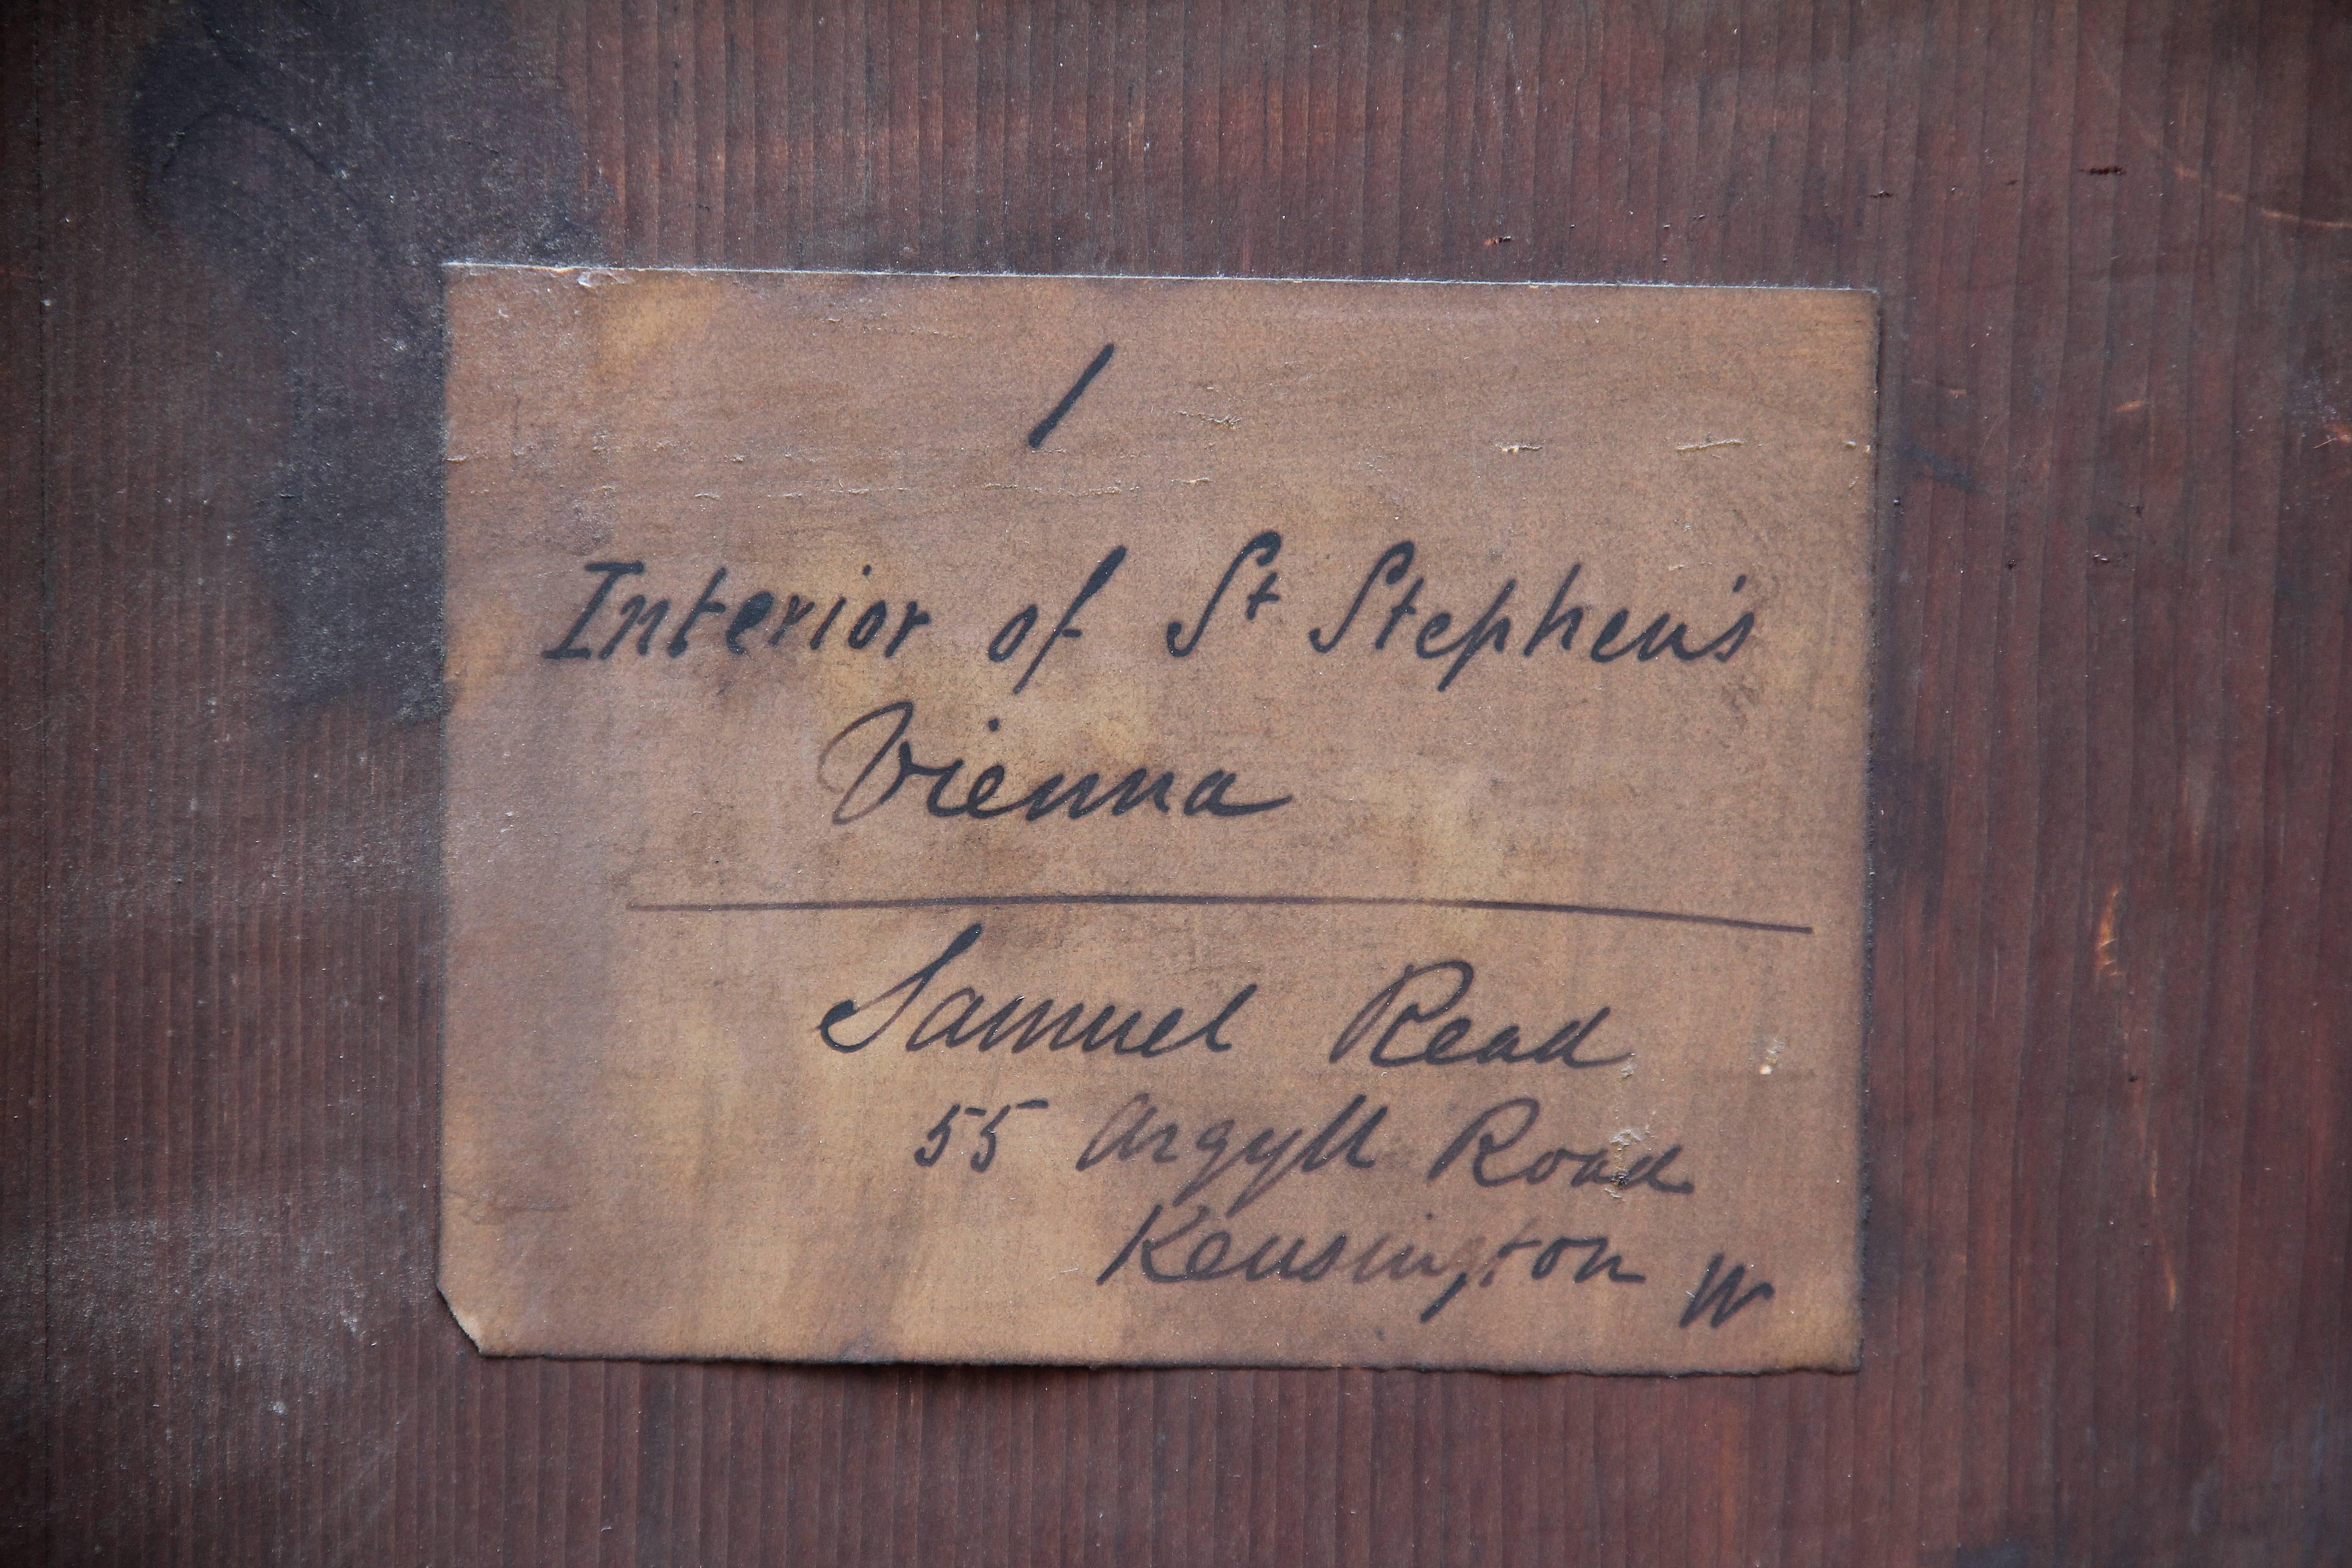 1
Interior of St Stephen's
Vienna
Samuel Read
55 Argyll Road
Kensington W